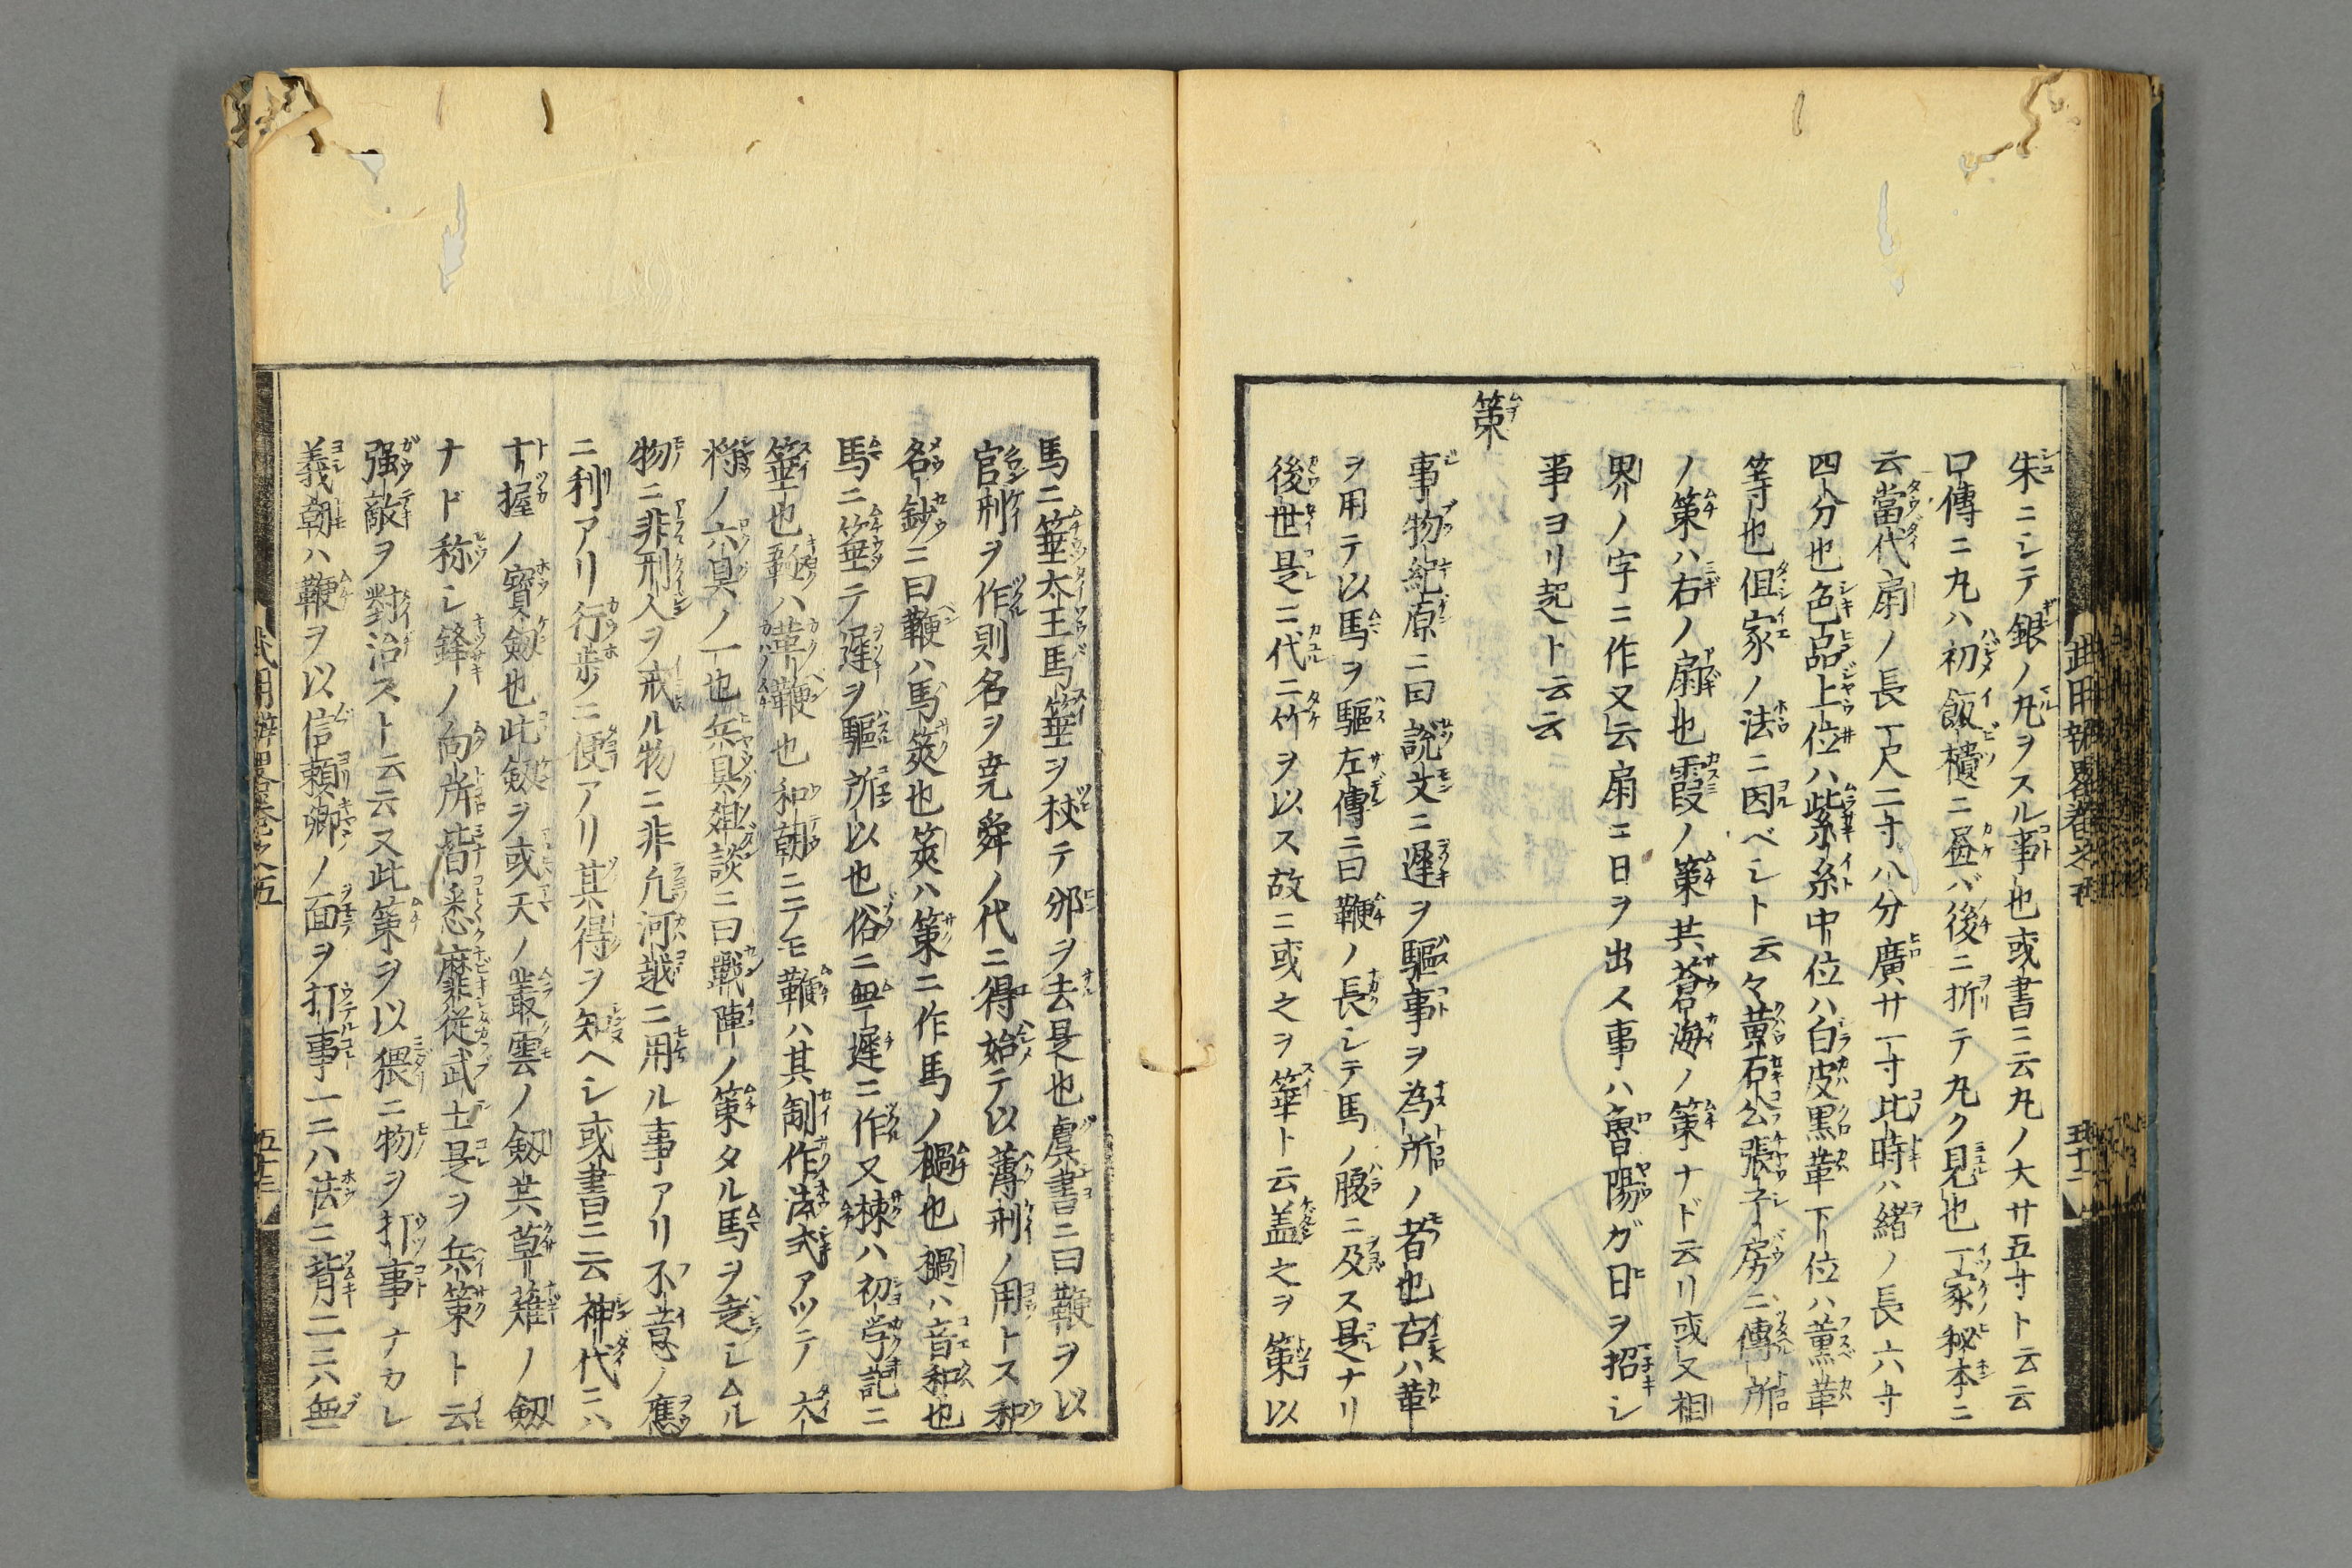 朱ニシテ銀ノ丸ヲスル事也或書ニ云丸ノ大サ五寸ト云云
口傳ニ丸ハ初飯櫃ニ畫バ後ニ折テ丸ク見也一家秘本ニ
云當代扇ノ長一尺二寸八分廣サ一寸此時ハ緒ノ長六寸
四分也色品上位ハ紫糸中位ハ白皮黒革下位ハ薫革
等也但家ノ法ニ因ベシト云々黄石公張子房ニ傳所
ノ策ハ右ノ扇也霞ノ策共蒼海ノ策ナド云リ或又相
界ノ字ニ作又云扇ニ日ヲ出ス事ハ魯陽ガ日ヲ招シ
事ヨリ起ト云云
策
事物紀原ニ曰説文ニ遲ヲ驅事ヲ為所ノ者也古ハ革
ヲ用テ以馬ヲ驅左傳ニ曰鞭ノ長シテ馬ノ腹ニ及ス是ナリ
後世是ニ代ニ竹ヲ以ス故ニ或之ヲ箠ト云盖之ヲ策以
馬ニ箠太王馬箠ヲ杖テ邠ヲ去是也虞書ニ曰鞭ヲ以
官刑ヲ作則名ヲ尭舜ノ代ニ得始テ以薄刑ノ用トス和
名鈔ニ曰鞭ハ馬筴也筴ハ策ニ作馬ノ檛也檛ハ音和也
馬ニ箠テ遲ヲ驅所以也俗ニ無遲ニ作又楝ハ初学記ニ
箠也ハ革鞭也和朝ニテモ鞭ハ其制作法式アツテ大
将ノ六具ノ一也兵具雑談ニ曰戰陣ノ策タル馬ヲ走シムル
物ニ非刑人ヲ戒ル物ニ非凢河越ニ用ル事アリ不意ノ應
ニ利アリ行歩ノニ便アリ其得ヲ知ヘシ或書ニ云神代ニハ
十握ノ寳劔也此劔ヲ或天ノ叢雲ノ劔共草薙ノ劔
ナド称シ鋒ノ向所皆悉靡従武士是ヲ兵策ト云
强敵ヲ對治スト云云又此策ヲ以猥ニ物ヲ打事ナカレ
義朝ハ鞭ヲ以信頼卿ノ面ヲ打事一ニハ法ニ背二ニハ無
武用辨畧巻之五
五十二